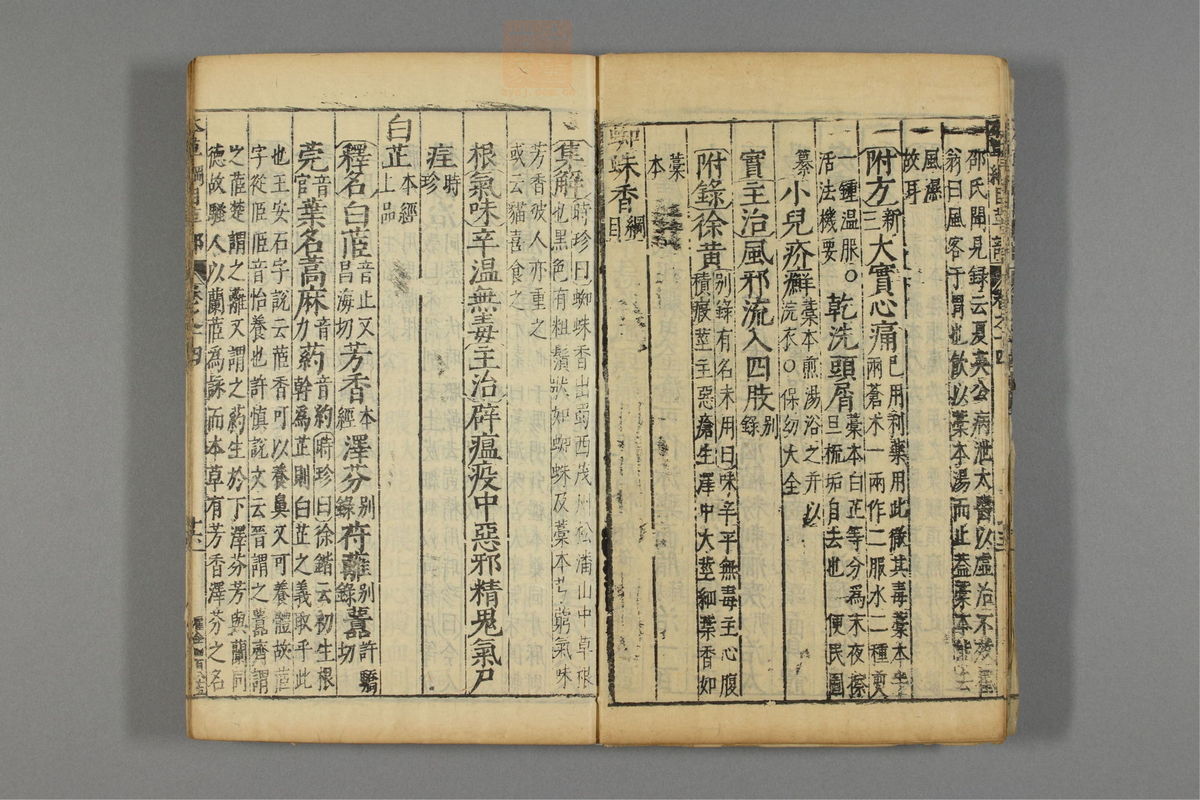 邵氏聞見録云夏英公病泄太醫以虛治不效
翁曰風客于胃也飲以藁本湯而止蓋藁本能去
風濕
故耳
附方新三大實心痛已用利藥用此徹其毒藁本半
兩蒼术一兩作二服水二種煎
一鍾温服○乾洗頭屑藁本白芷等分爲末夜擦
活法機要旦梳垢自去也便民圖
纂小兒疥癬藁本煎湯浴之并以
浣衣○保幼大全
實主治風邪流入四肢别
錄
附錄徐黄别錄有名未用曰味辛平無毒主心腹
積瘕莖主惡瘡生澤中大莖細葉香如
藁
本
蜘蛛香綱
目
集解時珍曰蜘蛛香出蜀西茂州松潘山中草根
也黑色有粗鬚狀如蜘蛛及藁本芎藭氣味
芳香彼人亦重之
或云貓喜食之
根氣味辛溫無毒主治辟瘟疫中惡邪精鬼氣尸
疰時
珍
白芷本經
上品
釋名白茝音止又
昌海切芳香本
經澤芬别
錄苻蘺别
錄虈許驕
切
莞音
官葉名蒿麻音
力葯音約時珍曰徐鍇云初生根
幹爲芷則白芷之義取乎此
也王安石字說云茝香可以養鼻又可養體故茝
字從𦣞𦣞音怡養也許慎說文云晉謂之虈齊謂
之茝楚謂之蘺又謂之葯生於下澤芬芳與蘭同
德故騷人以蘭茝爲詠而本草有芳香澤芬之名